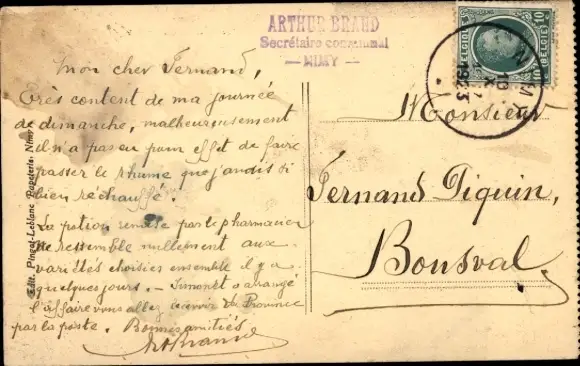 ARTHUR BRAND
Secrétaire communal
— NIMY —
BELGIQUE
BELGIË
10
10
1923
Mon cher Fernand,
Très content de ma journée
de dimanche, malheureusement
il n'a pas eu pour effet de faire
passer le rhume que j'avais si
bien réchauffé.
La potion remise par le pharmacien
ne ressemble nullement aux
variétés choisies ensemble il y a
quelques jours. — Simonet a arrangé
l'affaire vous allez recevoir la Province
par la poste. Bonnes amitiés
Monsieur
Fernand Piquin,
Bousval
Edit. Pinget-Leblanc Papeterie, Nimy